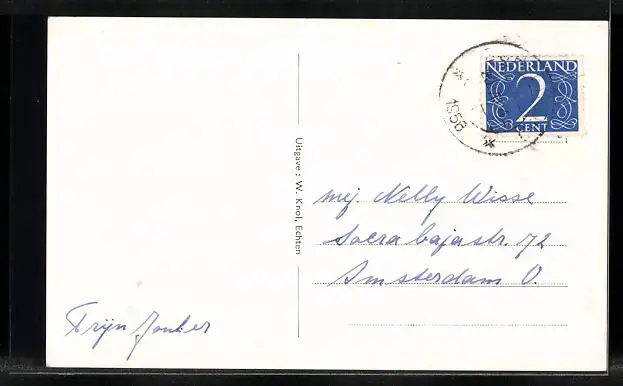 NEDERLAND
2
CENT
1958
Uitgave : W. Knol, Echten
mej. Nelly Wisse
Soerabajastr. 72
Amsterdam O.
Trijn Jonker